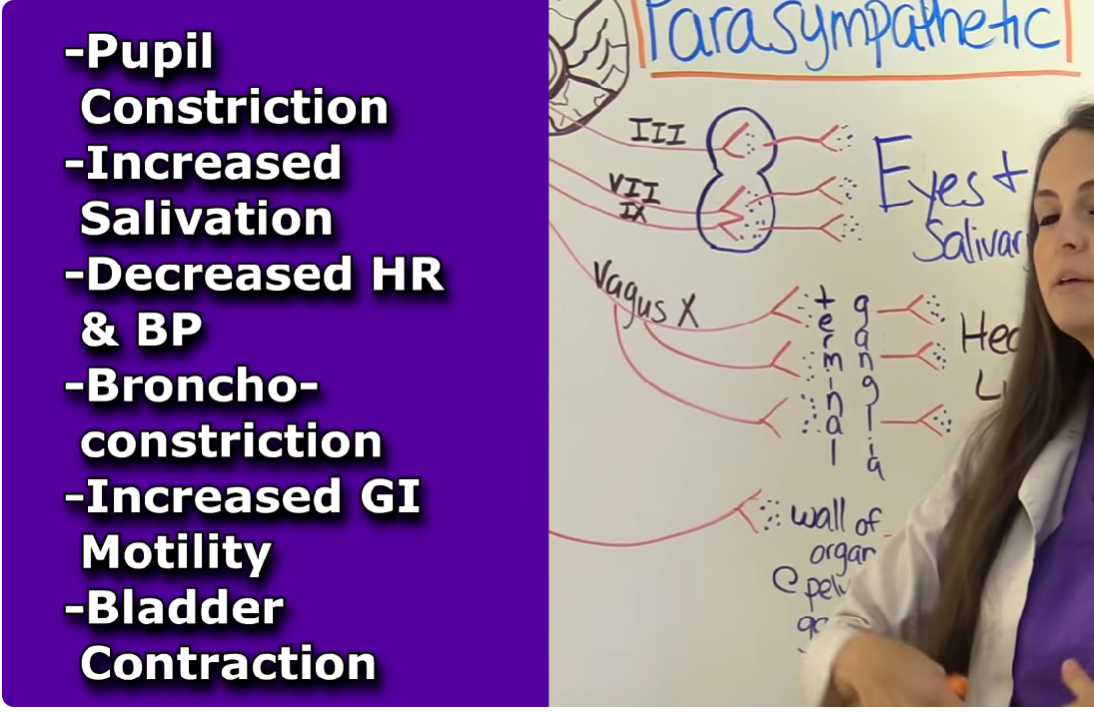 -Pupil
Constriction
-Increased
Salivation
-Decreased HR
& BP
-Broncho-
constriction
-Increased GI
Motility
-Bladder
Contraction
Parasympathetic
III
VII
IX
Eyes +
Salivar
Vagus X
terminal
ganglia
Hea
L
wall of
organ
@